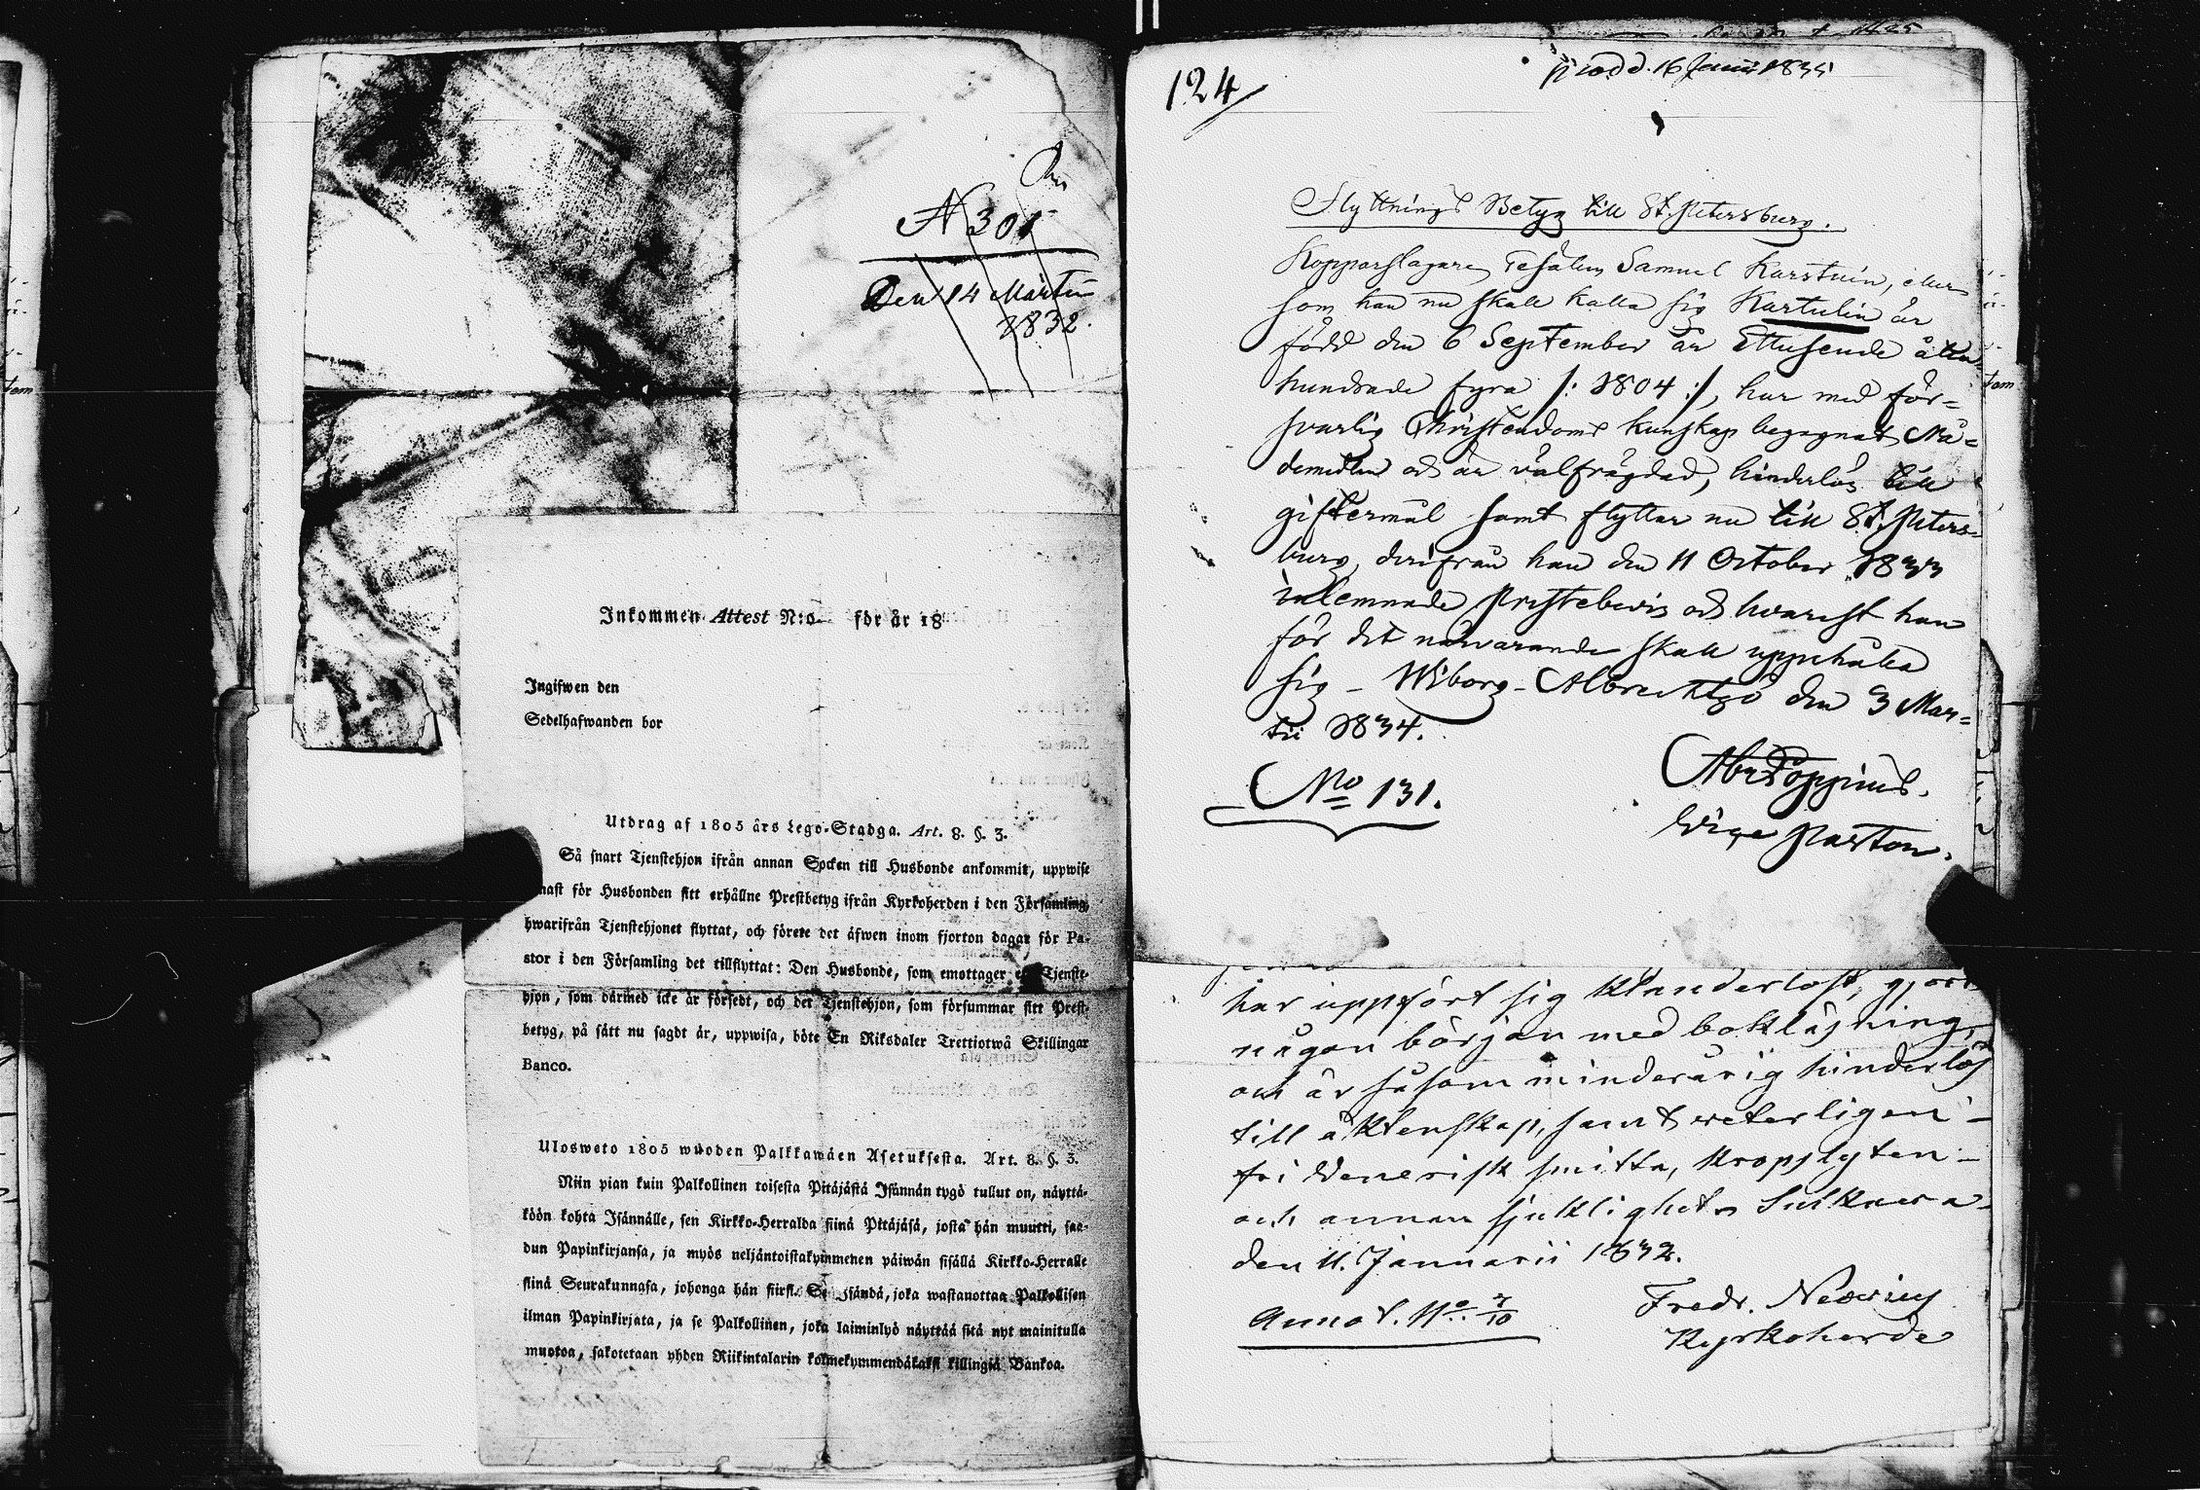 N 301
Den 14 Martii
1832.
Inkommen Attest N:o för år 18
Ingifwen den
Sedelhafwanden bor
Utdrag af 1805 års Lego-Stadga. Art. 8. §. 3.
Så snart Tjenstehjon ifrån annan Socken till Husbonde ankommit, uppwise
för Husbonden sitt erhållne Prestbetyg ifrån Kyrkoherden i den Församling,
hwarifrån Tjenstehjonet flyttat, och förete det äfwen inom fjorton dagar för Pa-
stor i den Församling det tillflyttat: Den Husbonde, som emottager Tjenste-
hjon, som därmed icke är försedt, och det Tjenstehjon, som försummar sitt Prest-
betyg, på sätt nu sagdt är, uppwisa, böte En Riksdaler Trettiotwå Skillingar
Banco.
Ulosweto 1805 wuoden Palkkawäen Asetuksesta. Art. 8. §. 3.
Niin pian kuin Palkollinen toisesta Pitäjästä Isännän tygö tullut on, näyttä-
köön kohta Isännälle, sen Kirkko-Herralda siinä Pitäjäsä, josta hän muutti, saa-
dun Papinkirjansa, ja myös neljäntoistakymmenen päiwän sisällä Kirkko-Herralle
siinä Seurakunnasa, johonga hän siirsi. Se Isändä, joka wastanottaa Palkollisen
ilman Papinkirjata, ja se Palkollinen, joka laiminlyö näyttää sitä nyt mainitulla
muotoa, sakotetaan yhden Riikintalarin kolmekymmendäkaksi killingiä Bankoa.
124
prod d. 16 Junii 1835
Flyttnings Betyg till St. Petersburg.
Kopparslagare Gesälen Samuel Karstuin, eller
som han nu skall kalla sig Kartulin är
född den 6 September år Ettusende åtta
hundrade fyra /: 1804 :/, har med för=
svarlig Christendoms kunskap begagnat Nå=
demedlen och är välfrägdad, hinderlös till
giftermål samt flyttar nu till St. Peters=
burg, derifrån han den 11 October 1833
inlemnade Prestebevis och hvarest han
för det närvarande skall uppehålla
sig – Wiborg – den 3 Mar=
tii 1834.
No 131.
Abr Poppius.
Vice Pastor.
har uppfört sig klanderlöst, gjort
någon början med bokläsning,
och är såsom minderårig hinderlös
till äktenskap, samt veterligen
fri Venerisk smitta,
och annan sjuklighet. Sulkava
den 11. Januarii 1832.
Annot. No. 7/10
Fredr. Neovius
Kyrkoherde